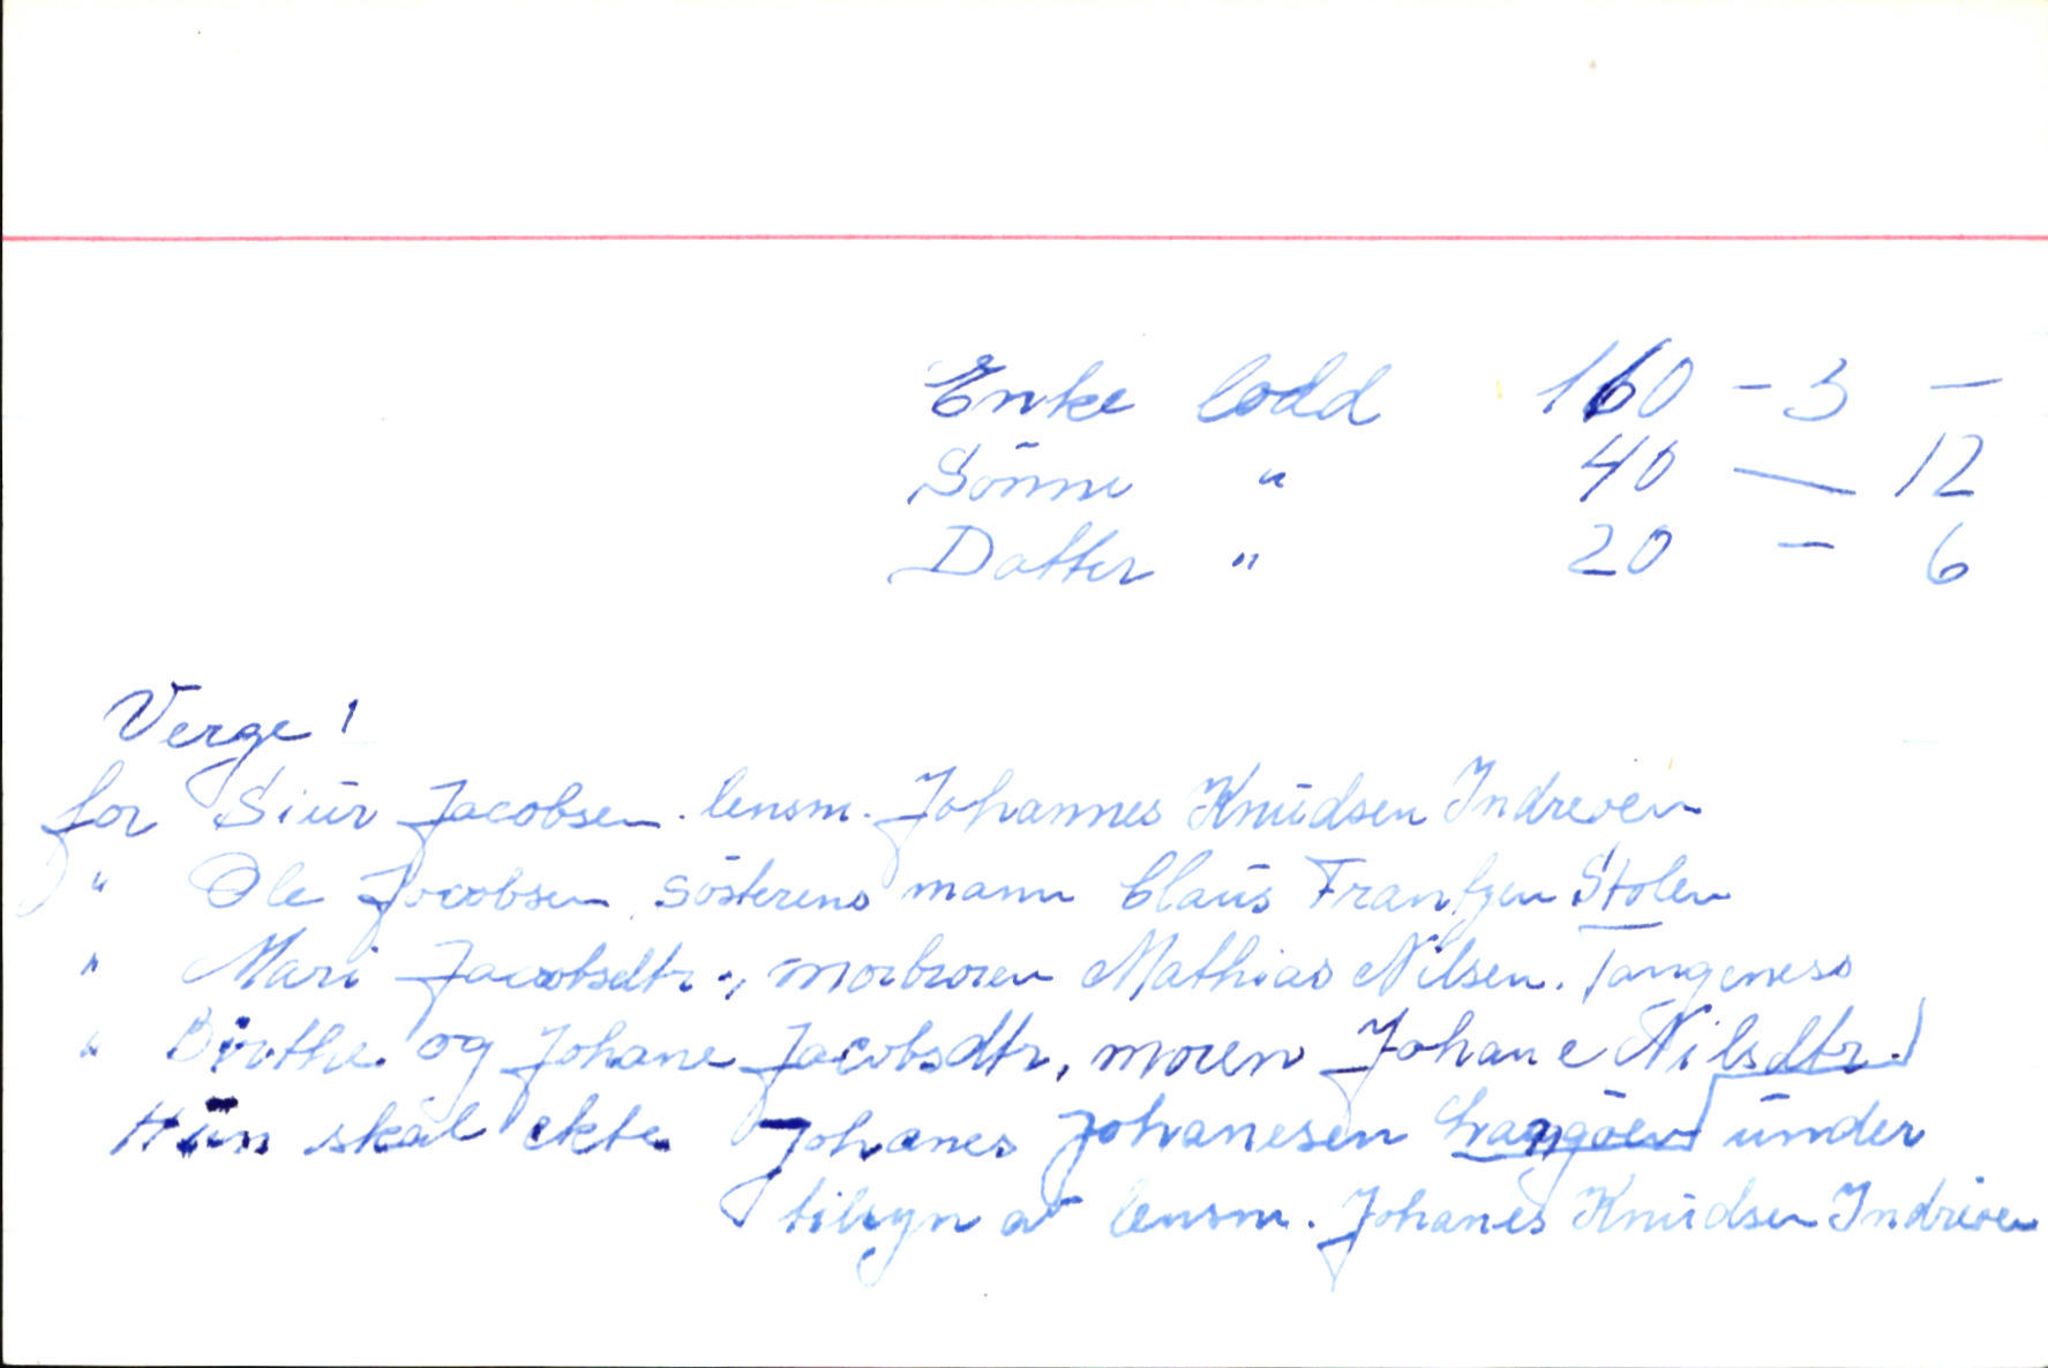 Enke lodd 160 - 3 -
Sönne " 40 — 12
Datter " 20 - 6
Verge!
for Siur Jacobsen. lensm. Johannes Knudsen Indreøen
" Ole Jacobsen, sösterens mann Claus Frantzen Stolen
" Mari Jacobsdtr., morbroren Mathias Nilsen. Tangeness
" Birthe og Johane Jacobsdtr, moren Johane Nilsdtr.
Hun skal ekte Johanes Johanesen under
tilsyn av lensm. Johanes Knudsen Indreøen